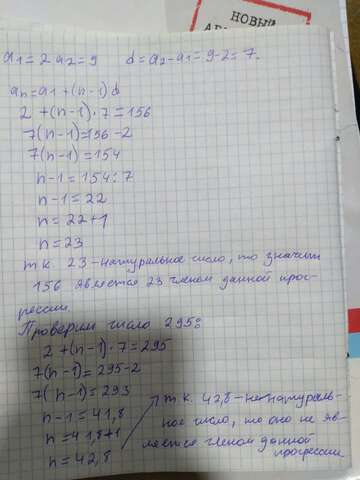 НОВЫ
a₁=2 a₂=9 d=a₂-a₁=9-2=7.
aₙ=a₁+(n-1)d
2+(n-1)·7=156
7(n-1)=156-2
7(n-1)=154
n-1=154:7
n-1=22
n=22+1
n=23
т.к. 23-натуральное число, то значит
156 является 23 членом данной прог-
рессии.
Проверим число 295:
2+(n-1)·7=295
7(n-1)=295-2
7(n-1)=293
n-1=41,8
n=41,8+1
n=42,8
т.к. 42,8-не натураль-
ное число, то оно не яв-
ляется членом данной
прогрессии